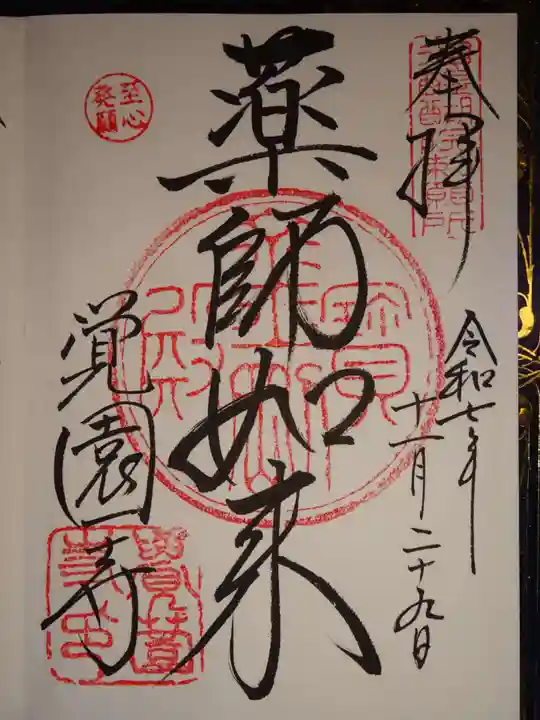 奉拝
令和七年
十一月二十九日
薬師如来
至心
発願
覚園寺